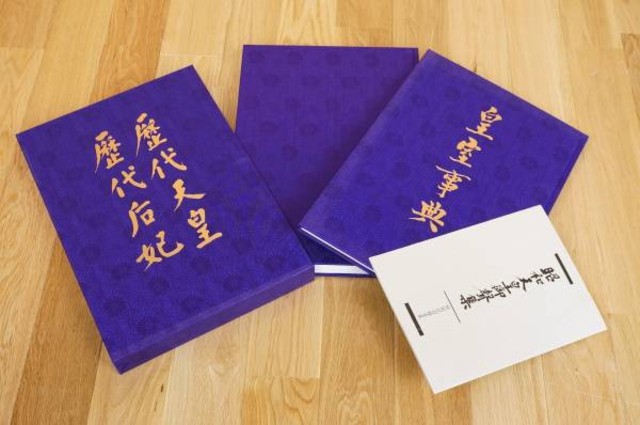 歴代天皇
歴代后妃
皇室事典
昭和天皇御聲集